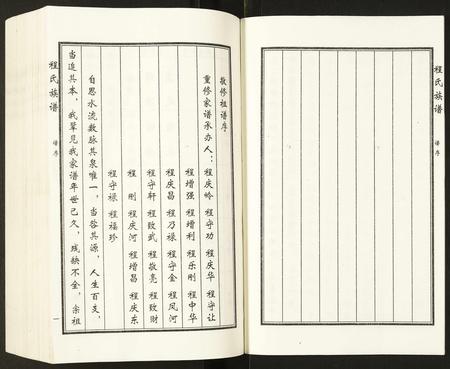 敬修祖谱序
重修家谱承办人：程庆岭 程守功 程庆华 程守让
程增强 程增利 程乐刚 程中华
程庆昌 程乃禄 程守金 程凤河
程守轩 程致武 程敬亮 程致财
程刚 程庆河 程增昌 程庆东
程守禄 程福珍
自思水流数脉其泉唯一，当咎其源，人生百支，
当追其本，我辈见我家谱年世已久，残缺不全，余祖
程氏族谱
谱序
一
程氏族谱
谱序